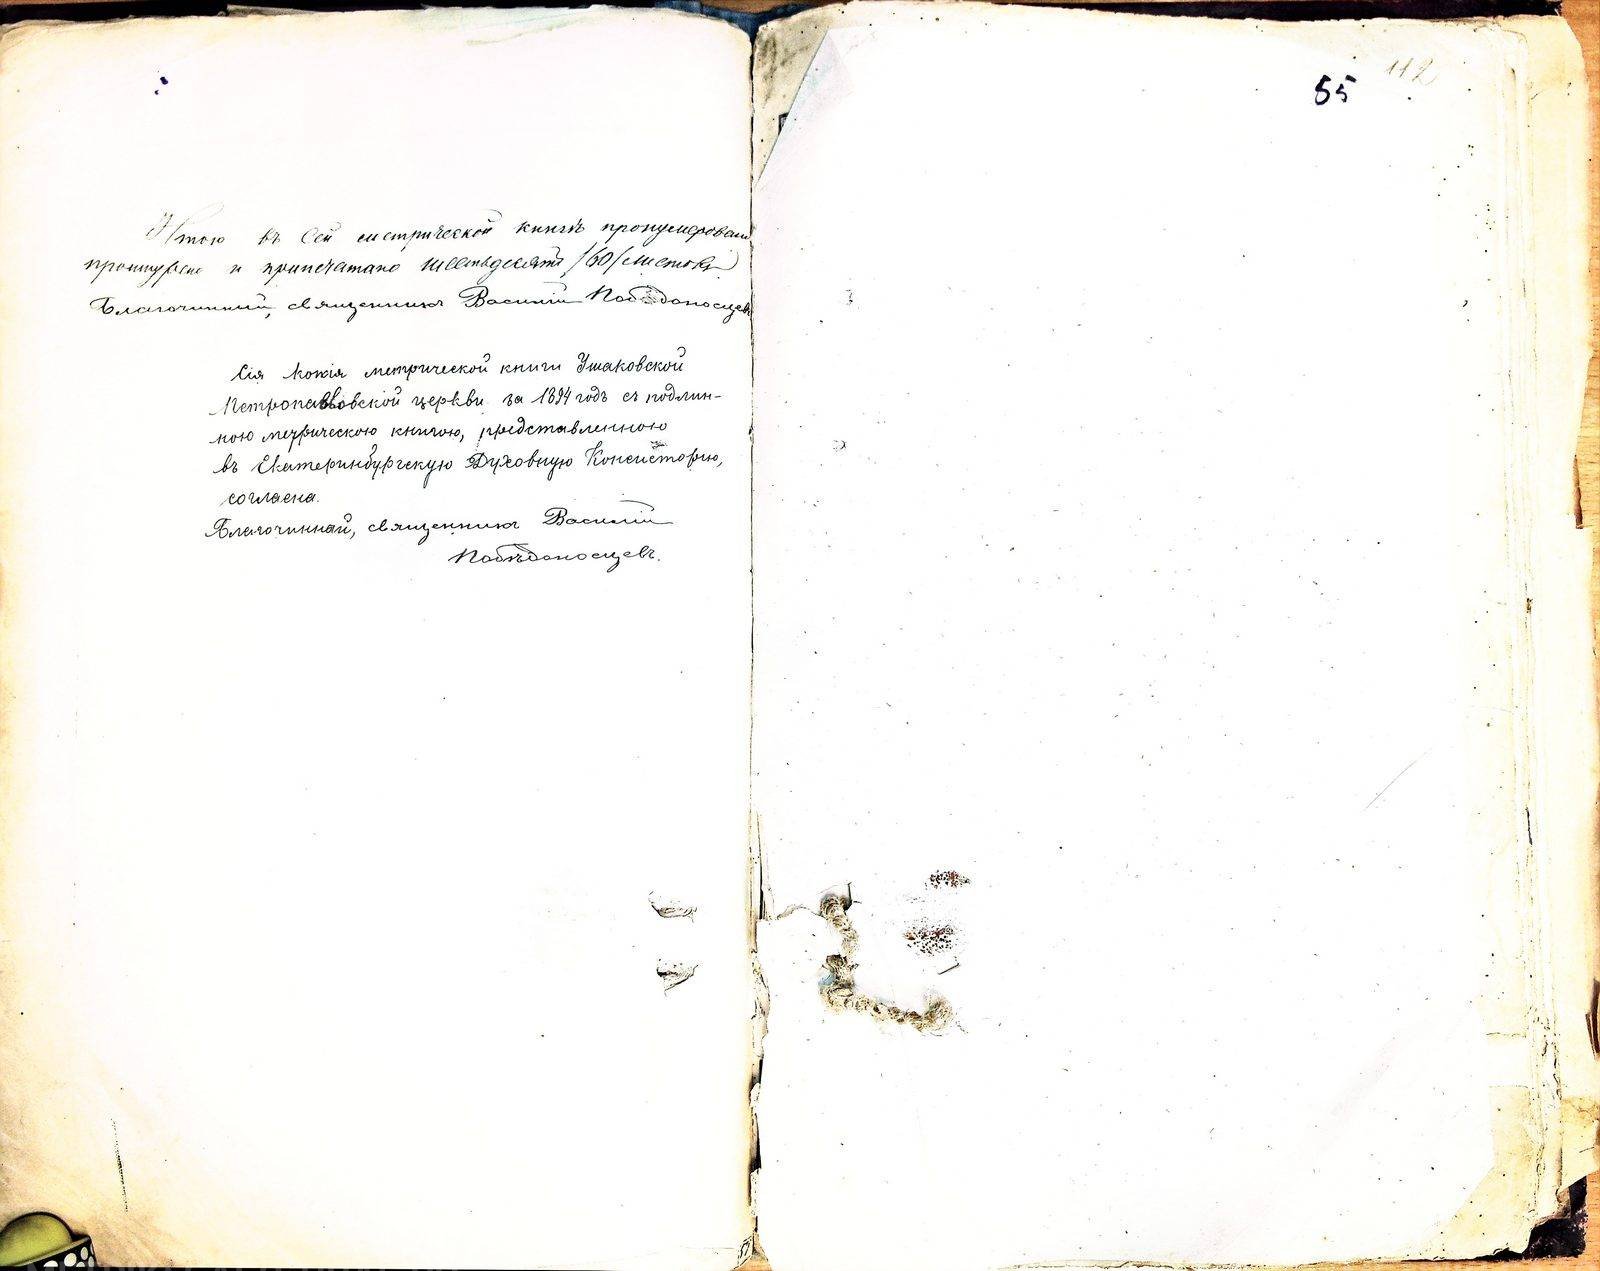 Итого въ сей метрической книгѣ пронумеровано
прошнуровано и припечатано шестьдесятъ /60/ листовъ
Благочинный, священникъ Василій Побѣдоносцевъ
Сія копія метрической книги Ушаковской
Петропавловской церкви за 1894 годъ съ подлин-
ною метрическою книгою, представленною
въ Екатеринбургскую Духовную Консисторію,
согласна.
Благочинный, священникъ Василій
Побѣдоносцевъ.
55
112